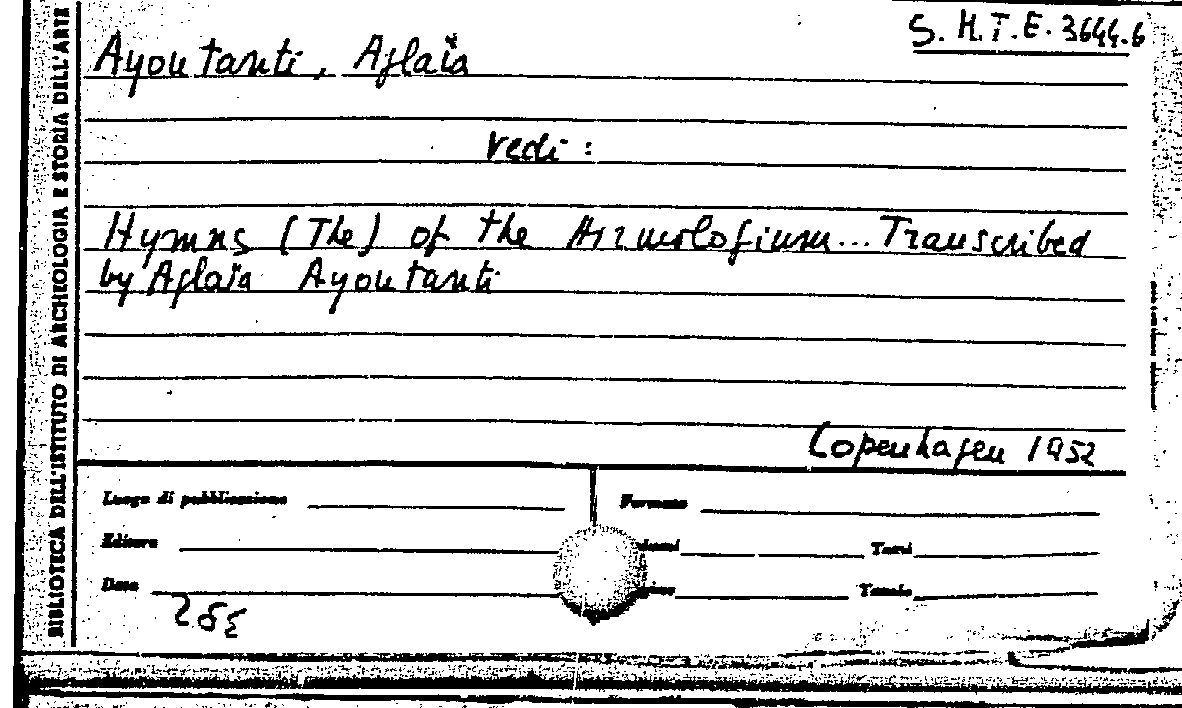 S. H. T. E. 3644.6
Ayoutanti, Aglaïa
vedi :
Hymns (The) of the Hirmologium... Transcribed
by Aglaïa Ayoutanti
Copenhagen 1952
Luogo di pubblicazione
Formato
Editore
Tomi
Data
Tavole
BIBLIOTECA DELL'ISTITUTO DI ARCHEOLOGIA E STORIA DELL'ARTE